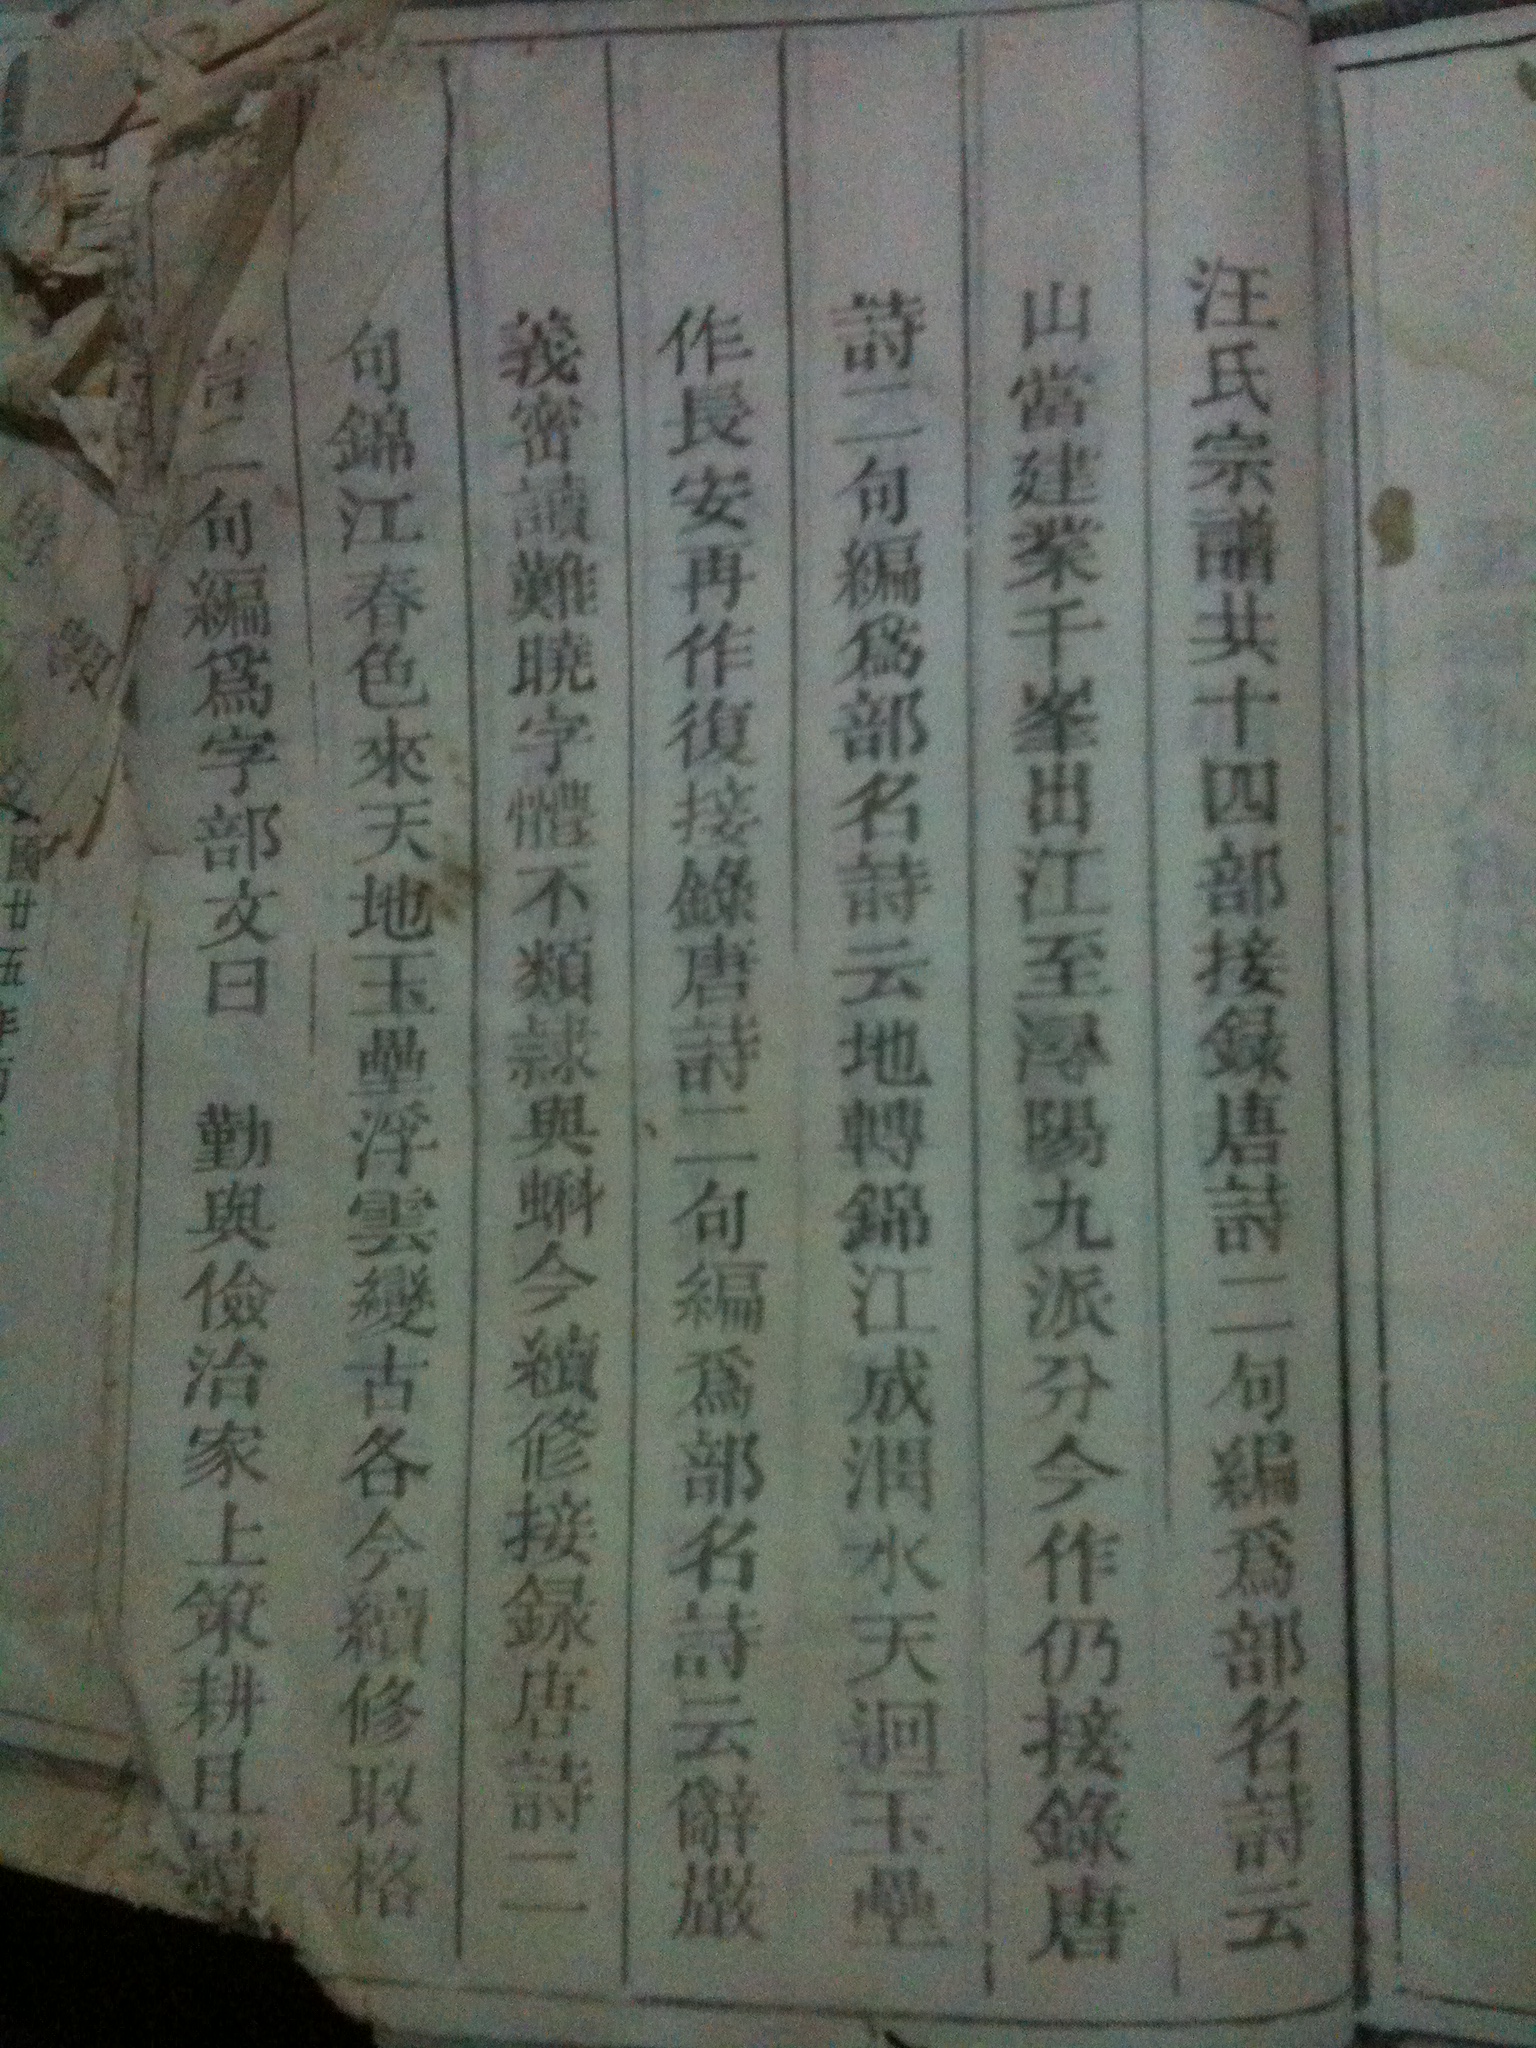 汪氏宗譜共十四部接録唐詩二句編為部名詩云
山當建業千峯出江至潯陽九派分今作仍接錄唐
詩二句編爲部名詩云地轉錦江成渭水天迴玉壘
作長安再作復接錄唐詩二句編爲部名詩云辭嚴
義密讀難曉字體不類隷與蝌今續修接録唐詩二
句錦江春色來天地玉壘浮雲變古各今續修取格
言二句編爲字部文曰　勤與儉治家上策耕且讀
國廿五年